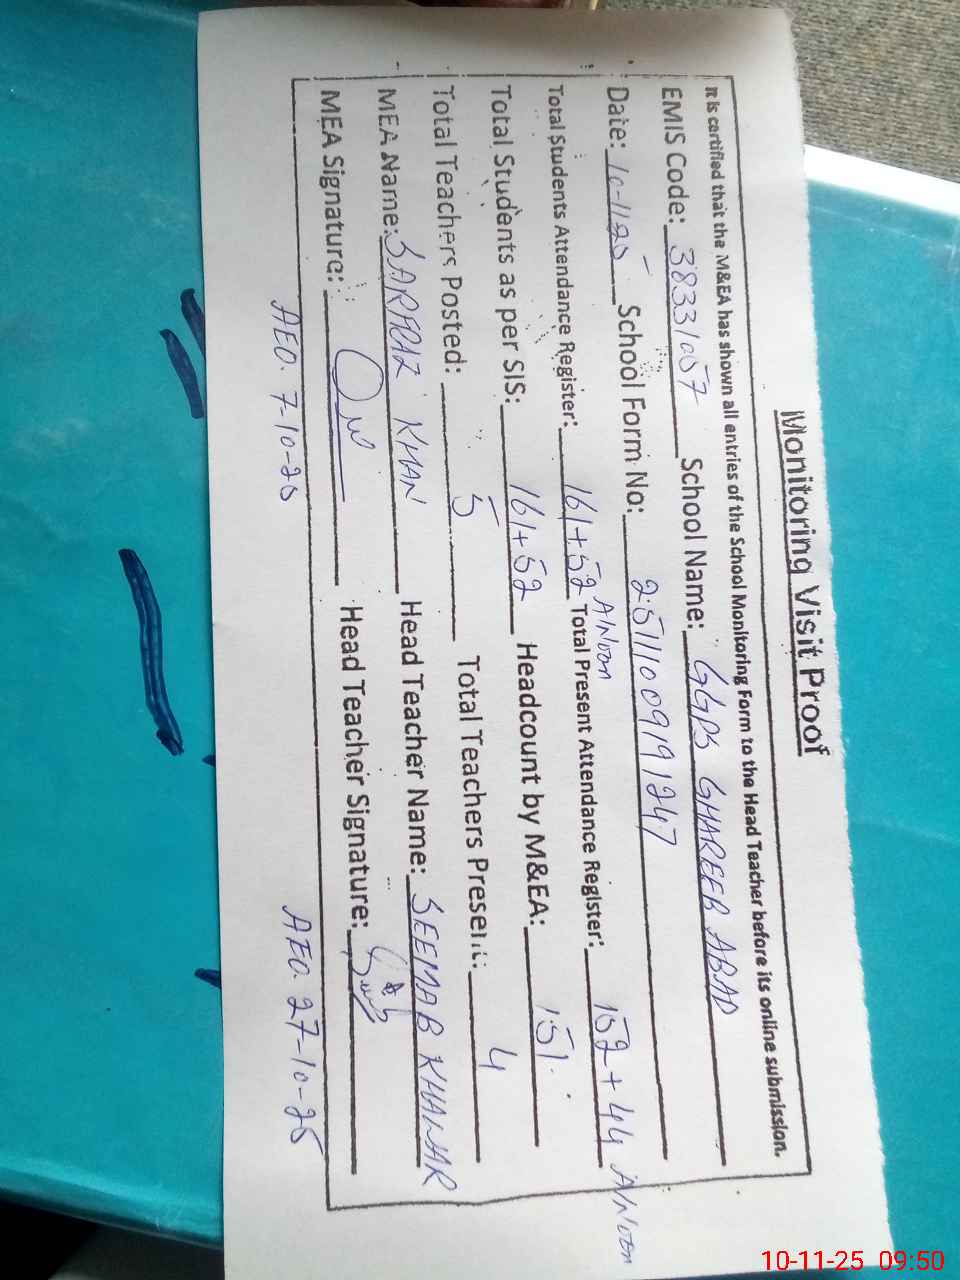 Monitoring Visit Proof
It is certified that the M&EA has shown all entries of the School Monitoring Form to the Head Teacher before its online submission.
EMIS Code: 38331007 School Name: GGPS GHAREEB ABAD
Date: 10-1125 School Form No: 25111009191247
Total Students Attendance Register: 161+52 A/Noon Total Present Attendance Register: 152+44 A/Noon
Total Students as per SIS: 161+52 Headcount by M&EA: 151.
Total Teachers Posted: 5 Total Teachers Present: 4
MEA Name: SARFRAZ KHAN Head Teacher Name: SEEMAB KHAWAR
MEA Signature: Head Teacher Signature:
AEO. 7-10-25 AEO. 27-10-25
10-11-25 09:50